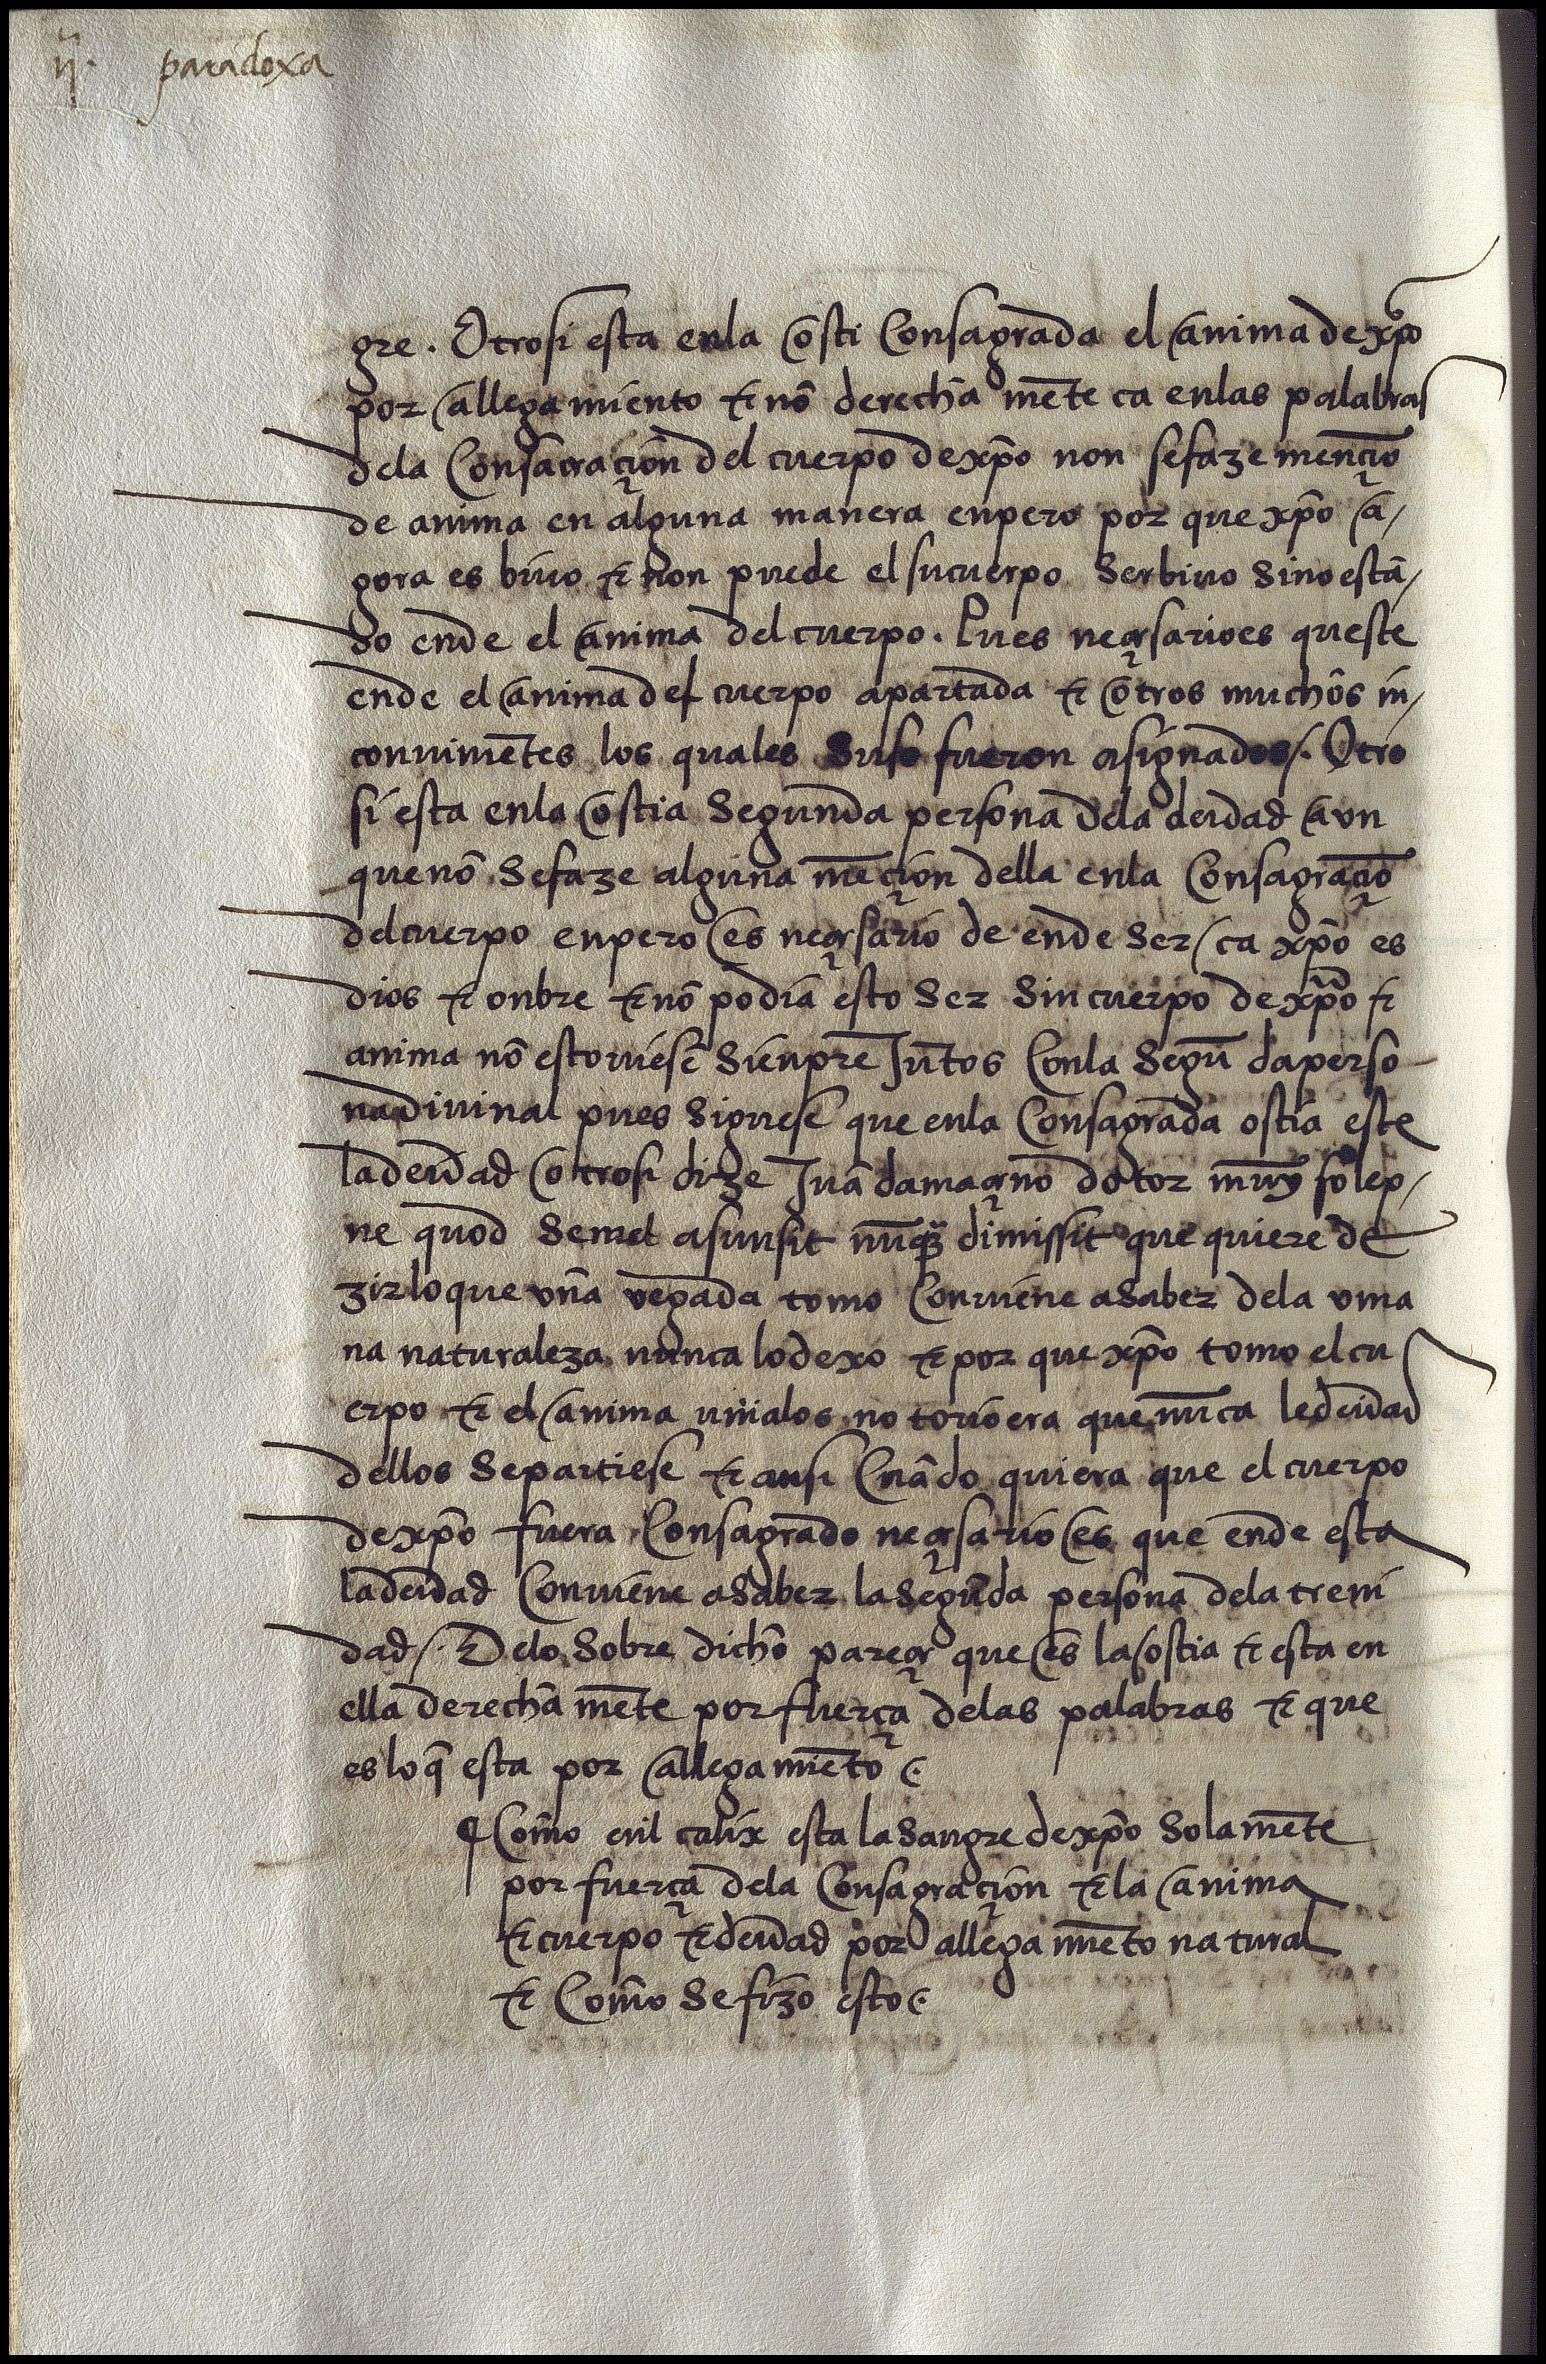 ij. paradoxa
gre. Otrosi esta enla osti Consagrada el anima de xp̃o
por allegamiento ⁊ nõ derecha mẽte ca enlas palabras
dela Consacraçion del cuerpo de xp̃o non sefaze mençiõ
de anima en alguna manera enpero por que xp̃o a/
gora es biuo ⁊ non puede el sucuerpo Serbiuo Sino está/
do ende el anima del cuerpo. Pues neçesarioes queste
ende el anima del cuerpo apartada ⁊ otros muchos in/
conuiniẽtes los quales Suso fueron asignados/. Otro
si esta enla ostia Segunda persona dela deidad aun
quenõ Sefaze alguna mẽçion della enla Consagraçiõ
delcuerpo enpero es neçesario de ende Ser ca xp̃o es
dios ⁊ onbre ⁊ nõ podia esto Ser Sin cuerpo de xp̃o ⁊
anima nõ estouiese Sienpre Jũtos Conla Segũ daperso
nadiuinal pues Siguese que enla Consagrada ostia este
ladeidad otrosi dize Juã damaçeno dotor muy solep/
ne quod Semel asunsit nũq̃ dimissit que quiere de
zirloque vna vegada tomo Conuiene aSaber dela vma
na naturaleza nunca lodexo ⁊ por que xp̃o tomo el cu
erpo ⁊ el anima vnialos no touiera que nũca ledeidad
dellos Separtiese ⁊ ansi Cuãdo quiera que el cuerpo
dexp̃o fuera Consagrado neçesario es que ende esta
ladeidad Conuiene aSaber laSegũda persona dela treni
dad/. Delo Sobre dicho pareçe que es la ostia ⁊ esta en
ella derecha mẽte por fuerça delas palabras ⁊ que
es lo q̃ esta por allega miẽto.
¶ Como enl calix esta laSangre dexp̃o Sola mẽte
por fuerça dela Consagraçion ⁊ la anima
⁊ cuerpo ⁊ deidad por allega miẽto natural
⁊ Como Se fizo esto.